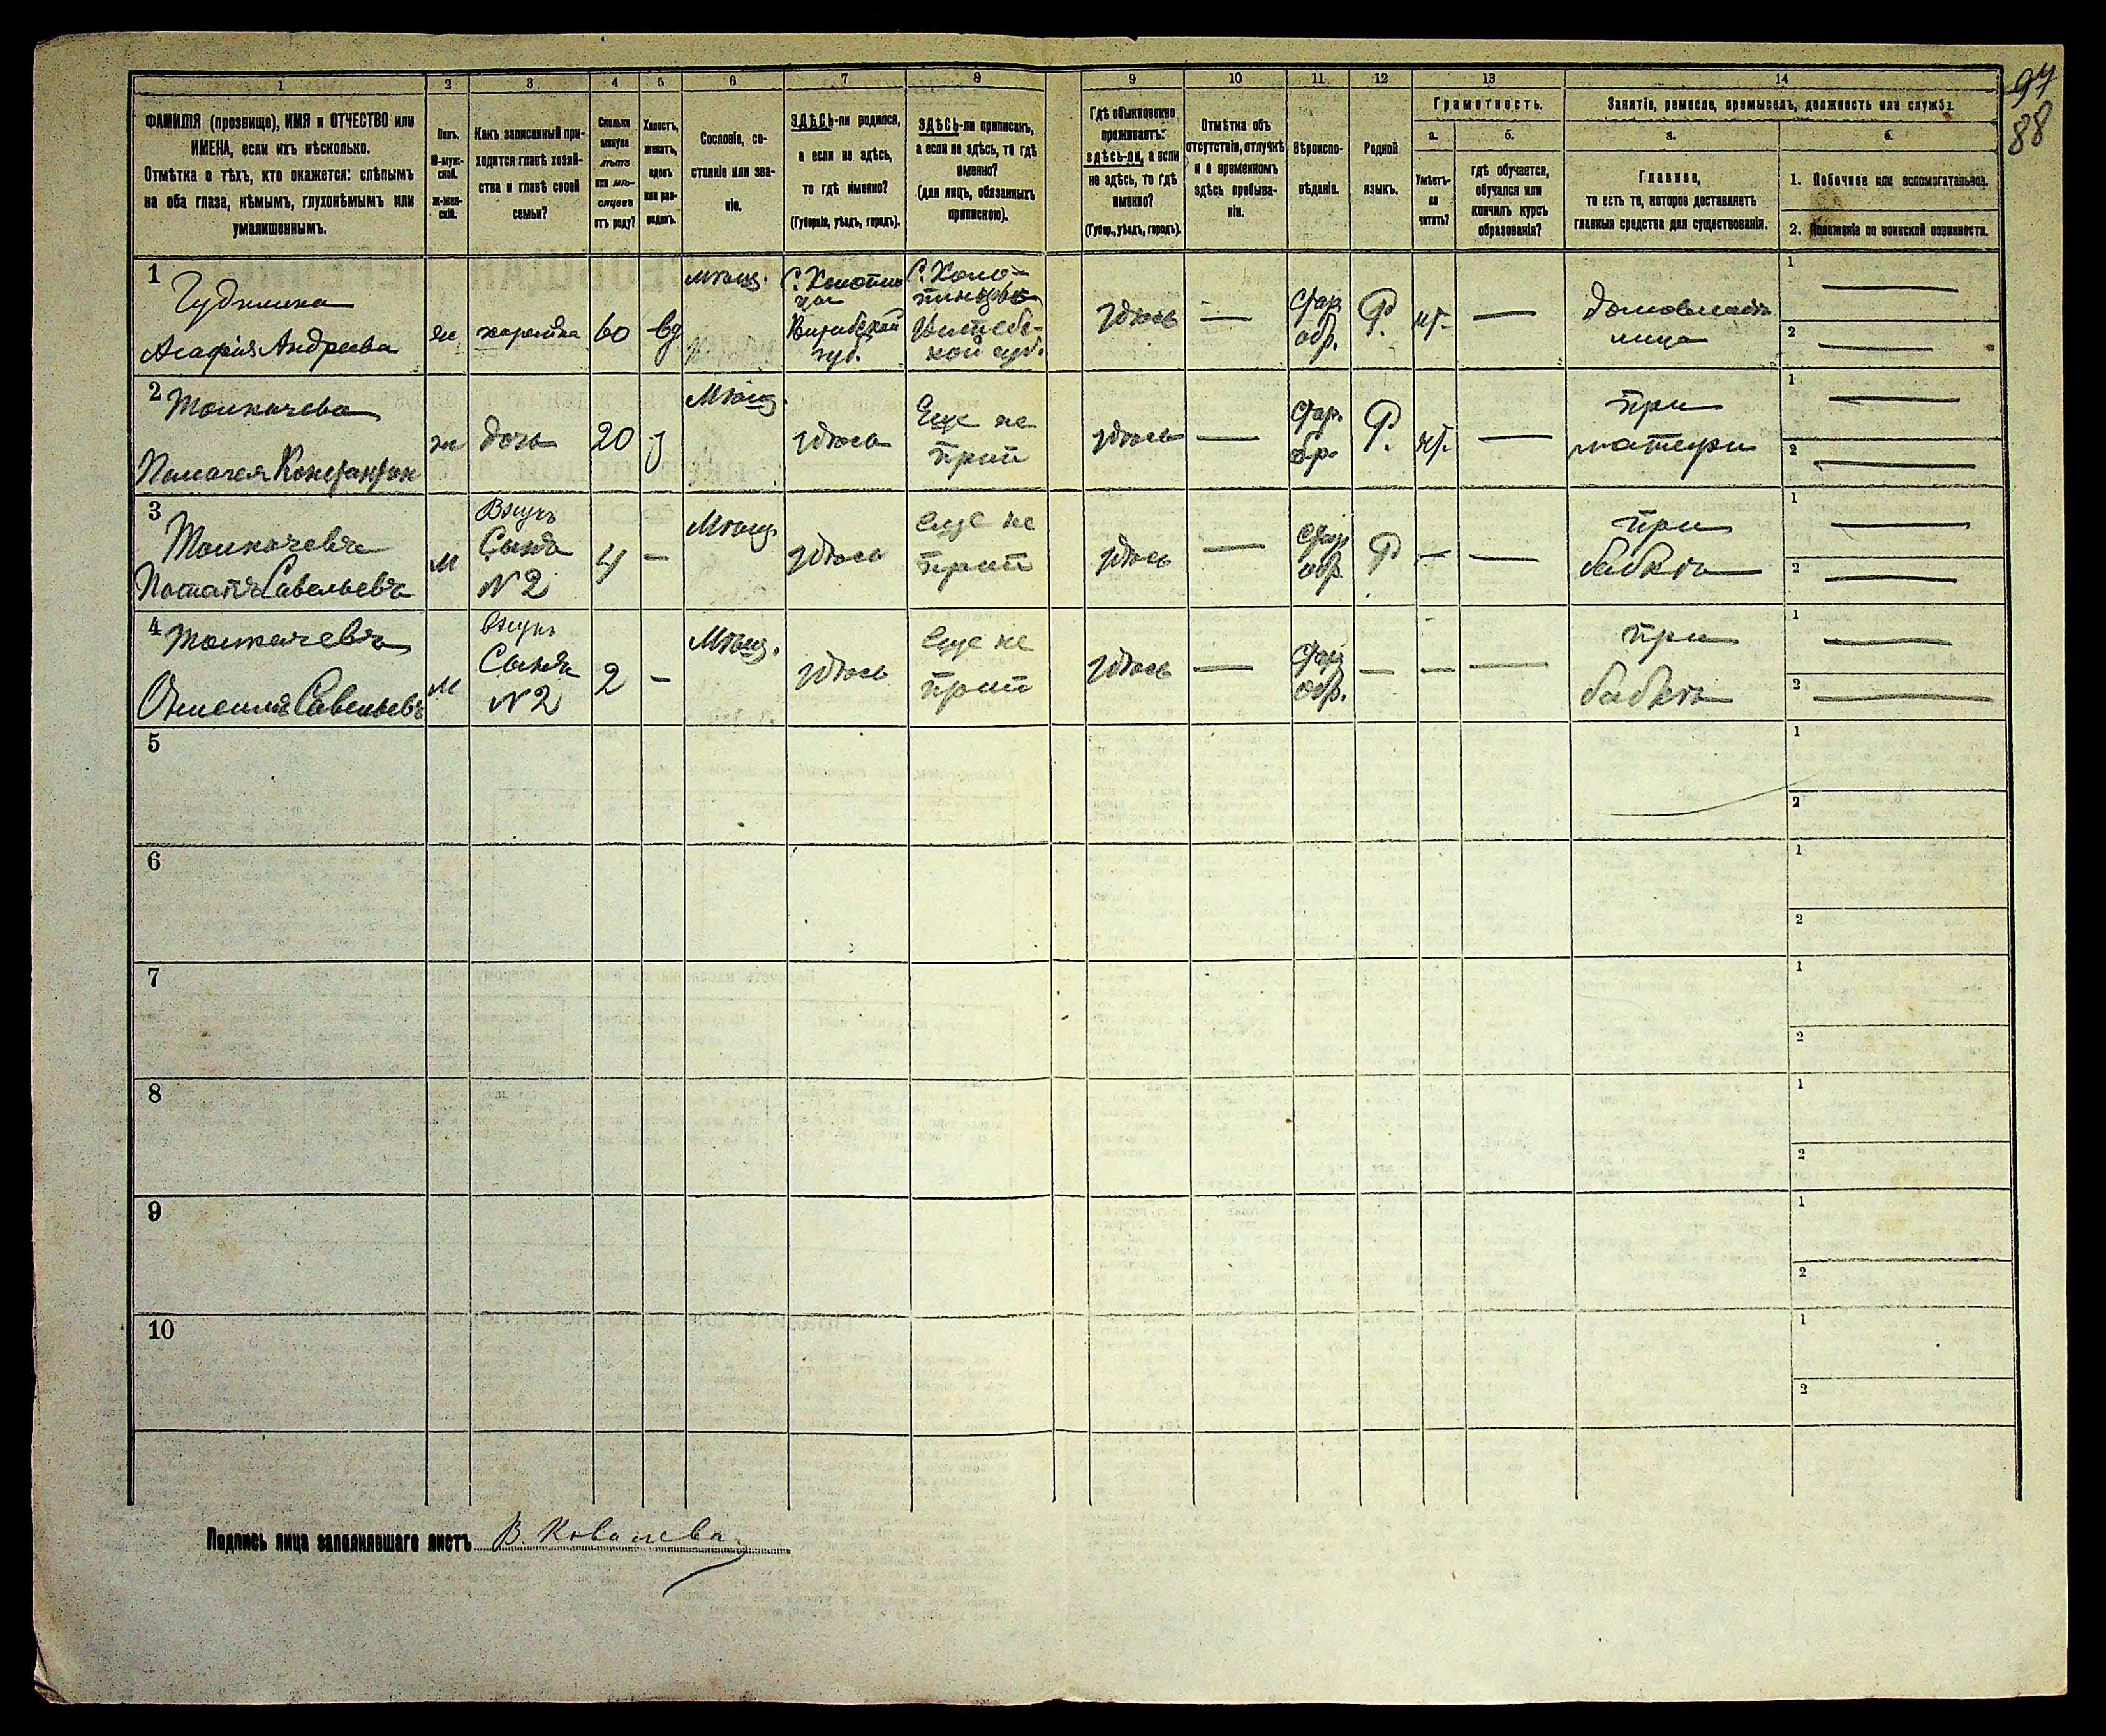 97
88
1
2
3
4
5
6
7
8
ФАМИЛІЯ (прозвище), ИМЯ и ОТЧЕСТВО или
ИМЕНА, если ихъ нѣсколько.
Отмѣтка о тѣхъ, кто окажется: слѣпымъ
на оба глаза, нѣмымъ, глухонѣмымъ или
умалишеннымъ.
Полъ.
М-муж-
ской.
ж-жен-
скій.
Какъ записанный при-
ходится главѣ хозяй-
ства и главѣ своей
семьи?
Сколько
минуло
лѣтъ
или мѣ-
сяцевъ
отъ роду?
Холостъ,
женатъ,
вдовъ
или раз-
веденъ.
Сословіе, со-
стояніе или зва-
ніе.
ЗДѢСЬ-ли родился,
а если не здѣсь,
то гдѣ именно?
(Губернія, уѣздъ, городъ).
ЗДѢСЬ-ли приписанъ,
а если не здѣсь, то гдѣ
именно?
(для лицъ, обязанныхъ
припискою).
9
10
11
12
13
14
Гдѣ обыкновенно
проживаетъ:
здѣсь-ли, а если
не здѣсь, то гдѣ
именно?
(Губер., уѣздъ, городъ).
Отмѣтка объ
отсутствіи, отлучкѣ
и о временномъ
здѣсь пребыва-
ніи.
Вѣроиспо-
вѣданіе.
Родной
языкъ.
Грамотность.
а.
б.
Умѣетъ-
ли
читать?
гдѣ обучается,
обучался или
кончилъ курсъ
образованія?
Занятіе, ремесло, промыселъ, должность или служба.
а.
б.
Главное,
то есть то, которое доставляетъ
главныя средства для существованія.
1. Побочное или вспомогательное.
2. Положеніе по воинской повинности.
1
Агафія Андреева
ж
хозяйка
60
вд
мѣщ.
Витебской
губ.
Витебс-
кой губ.
здѣсь
—
Стар.
обр.
Р.
нѣ.
—
домовладѣ
лица
1 —
2 —
2 Толкачева
Пелагея
ж
дочь
20
з
Мѣщ.
здѣсь
Еще не
прип
здѣсь
—
Стар.
обр.
Р.
нѣ.
—
при
матери
1 —
2 —
3
Толкачевъ
Потапъ Савельевъ
м
Внукъ
Сынъ
№ 2
4
—
Мѣщ.
здѣсь
еще не
прип
здѣсь
—
Стар
обр
Р
—
—
при
бабкѣ
1 —
2 —
4 Толкачевъ
Савельевъ
м
Внукъ
Сынъ
№ 2
2
—
Мѣщ.
здѣсь
еще не
прип
здѣсь
—
Стар
обр.
—
—
—
при
бабкѣ
1 —
2 —
5
1
2
6
1
2
7
1
2
8
1
2
9
1
2
10
1
2
Подпись лица заполнявшаго листъ В. Ковалева